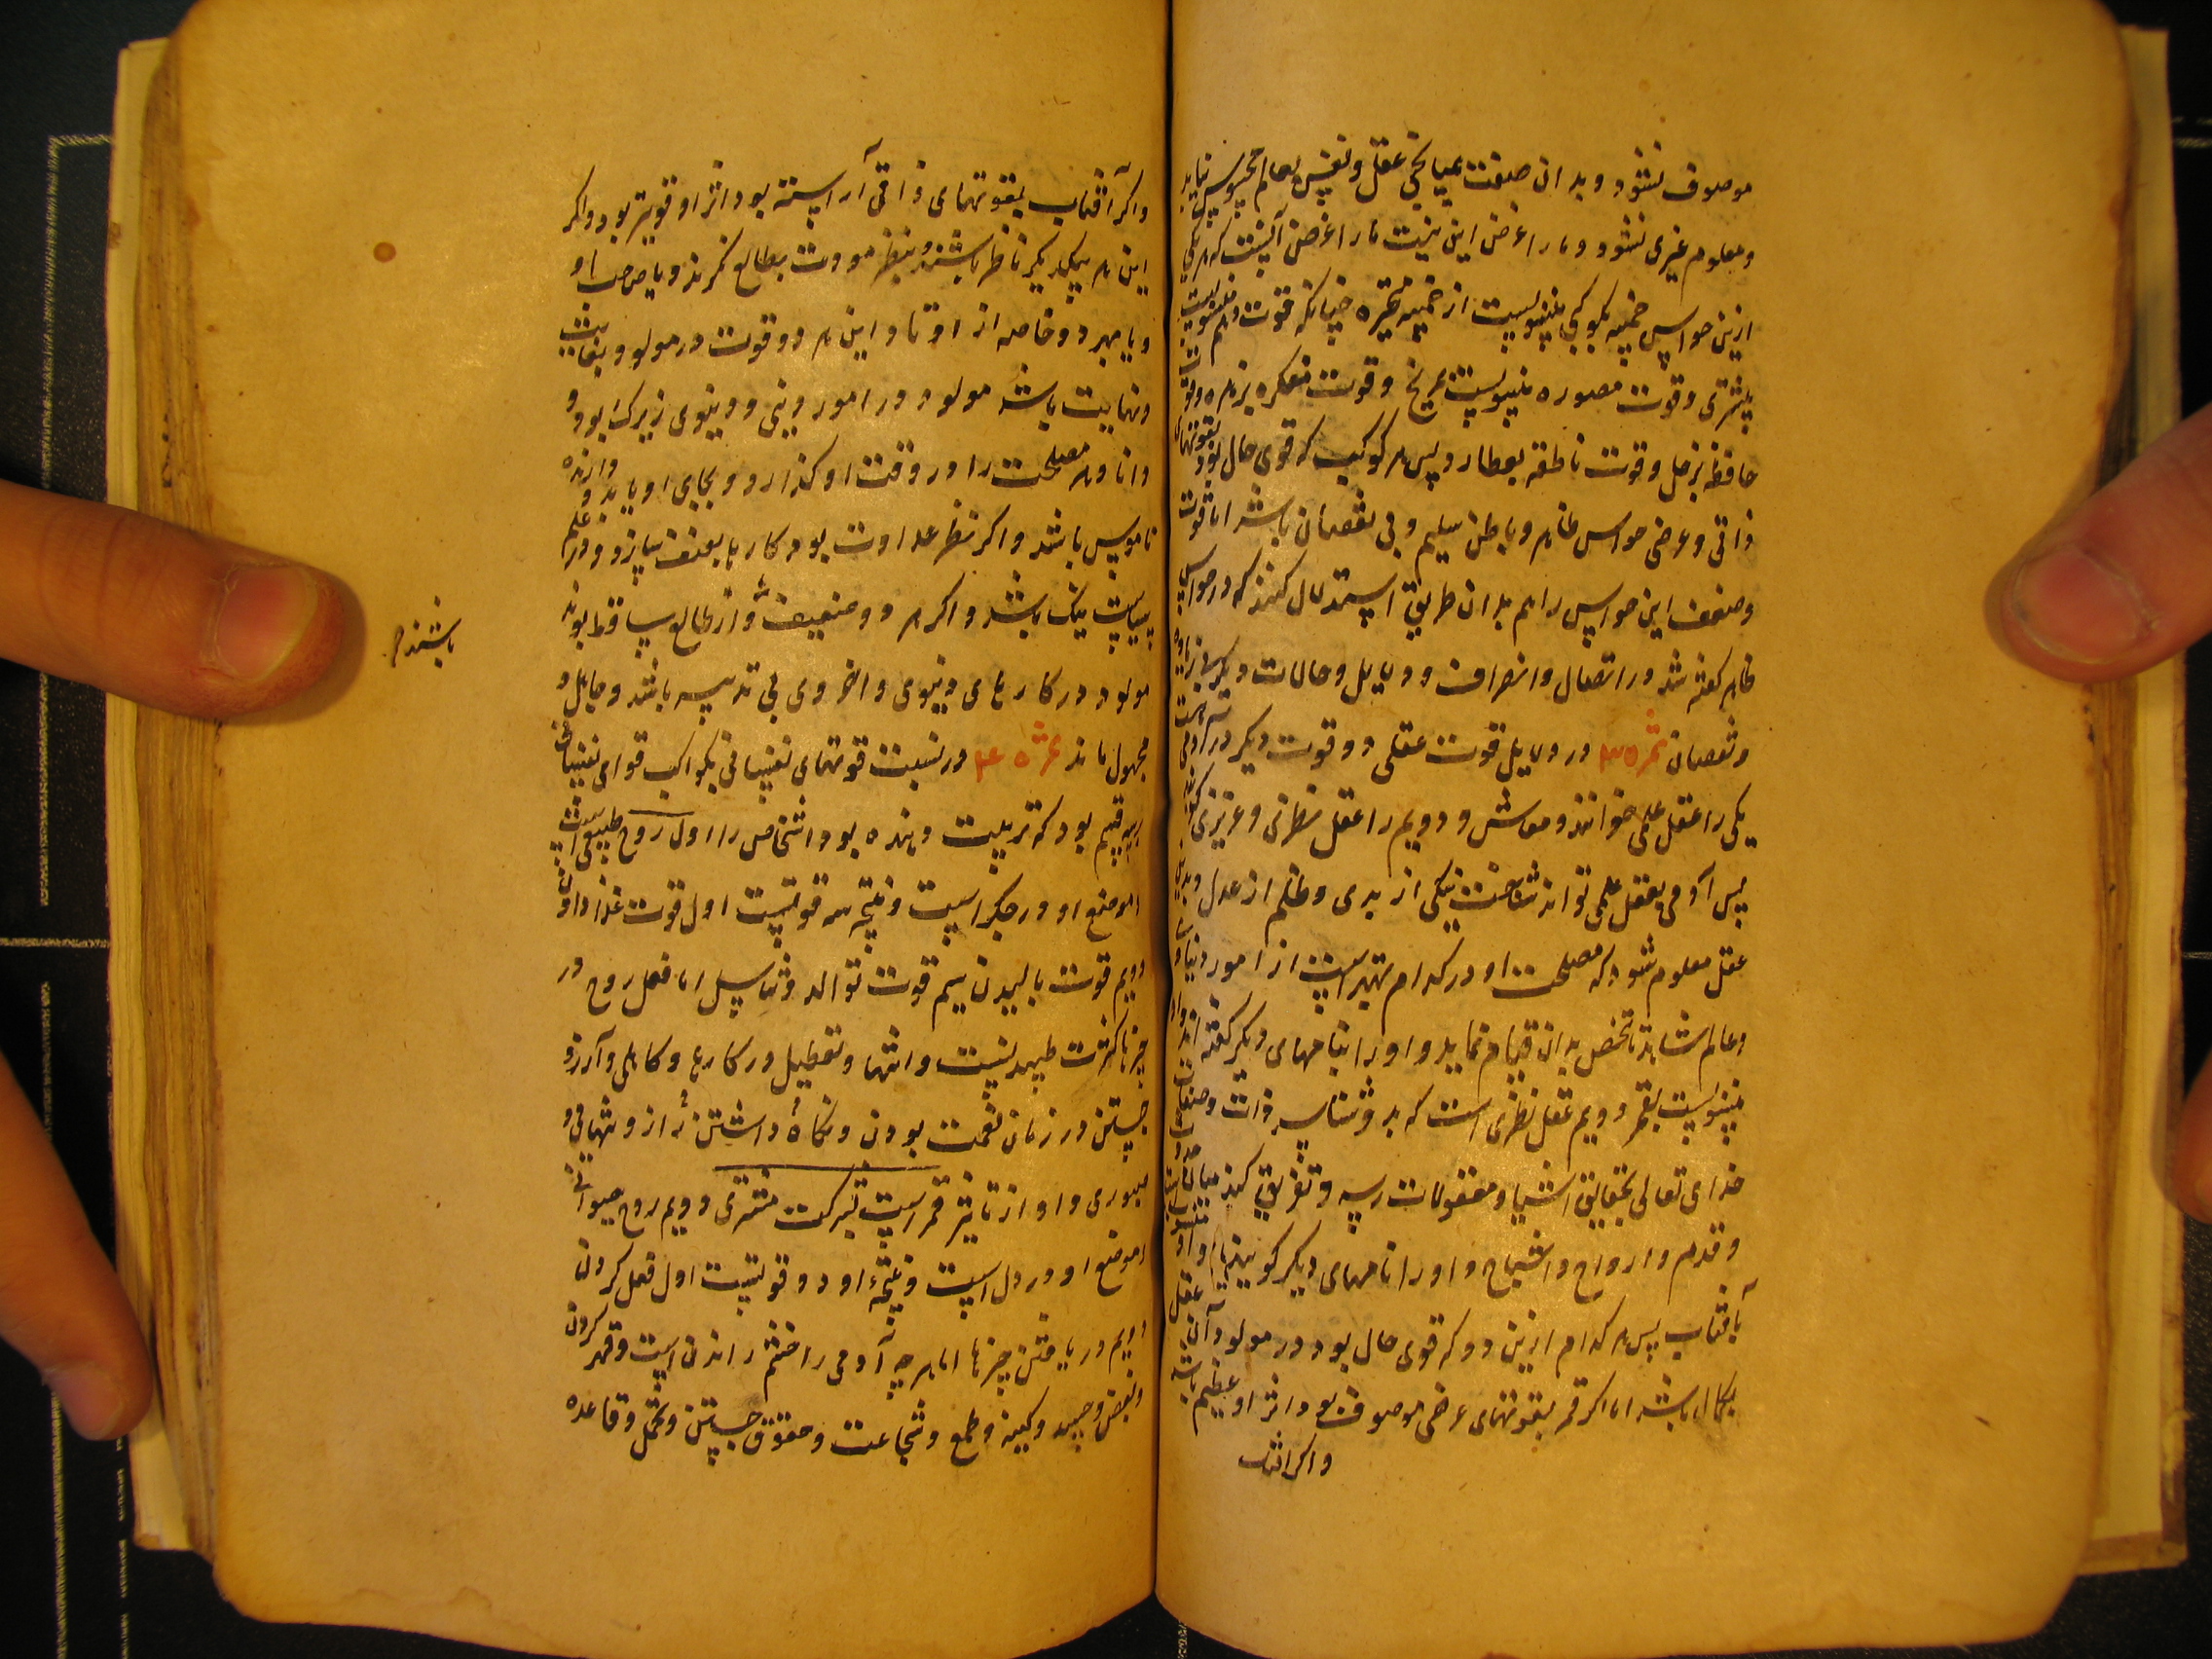 موصوف نشود و بدان صفت میانجی عقل و نفس بعالم محسوس نیاید
و معلوم غیری نشود و ما را غرض این نیست ما را غرض آنست که هر یکی
ازین حواس خمسه بکوکبی منسوبست از خمسه متحیره چنانکه قوت وهم منسوبست
بمشتری و قوت مصوره منسوبست بمریخ و قوت مفکره بزهره و قوت
حافظه بزحل و قوت ناطقه بعطارد پس هر کوکب که قوی حال بود بقوتهای
ذاتی و عرضی حواس ظاهر و باطن سلیم و بی نقصان باشد اما قوت
و ضعف این حواس را هم بدان طریق استدلال کنند که در حواس
ظاهر کفته شد در اتصال و انصراف و دلایل و حالات دیکر زیاده
و نقصان ثمره ۳ در دلایل قوت عقلی دو قوت دیکر در آدمی
یکی را عقل علمی خوانند و معاش و دویم را عقل نظری و غریزی کویند
پس آدمی بعقل علمی تواند شناخت نیکی از بدی و ظلم از عدل و بدین
عقل معلوم شود که مصلحت او در کدام تهتر است از امور دنیا و
و عالم شاید تا شخص بدان قیام نماید و او را بنامهای دیکر کفته اند و او
منسوبست بقمر دویم عقل نظری است که بدو شناسد ذات و صفات
خدای تعالی بحقایق اشیا و معقولات رسد و تفریق کند میان حدوث
و قدم و ارواح و اشباح و او را نامهای دیکر کویند و او منسوبست
بآفتاب پس هر کدام ازین دو که قوی حال بود در مولود آن عقل
بکمال باشد اما اکر قمر بقوتهای عرضی موصوف بود اثر او عظیم باشد
و اکر آفتاب
و اکر آفتاب بقوتهای ذاتی آراسته بود اثر او قویتر بود و اکر
این هر بیکدیکر ناظر باشند بنظر مودت بطالع نکرند و یا صاحب او
و یا مهر دو خاصه از اوتاد این هر دو قوت در مولود بغایت
و نهایت باشد مولود در امور دینی و دنیوی زیرک بود و
دانا و هر مصلحت را در وقت او کذارد و بجای او یابد و دارنده
ناموس باشد و اکر نظر عداوت بود کارها بعنف سازد و در علم
سیاست نیک باشد و اکر هر دو ضعیف و از طالع ساقط بوند
باشند
مولود در کارهای دنیوی و اخروی بی تدبیر باشد و جاهل و
مجهول ماند ثمره ۴ در نسبت قوتهای نفسانی بکواکب قوای نفسانی
سه قسم بود که تربیت دهنده بود اشخاص را اول روح طبیعی است
موضع او در جکر است و نتیجه سه قوتست اول قوت غذا دادن
دویم قوت بالیدن سیم قوت توالد و تناسل اما فعل روح در
چیزها کثرت طپیدنست و اشتها و تعطیل در کارها و کاهلی و آرزو
جستن در زمان نعمت بودن و نکاه داشتن نه از و تنهایی و
صبوری و او از تاثیر قمر است بشرکت مشتری دویم روح حیوانی
موضع او در دل است و نتیجه او دو قوتست اول فعل کردن
دویم دریافتن چیزها اما هر چه آدمی را خشم راندن است و قهر کردن
و بغض و حسد و کینه و طمع و شجاعت و حقوق جستن و تحمل و قاعده